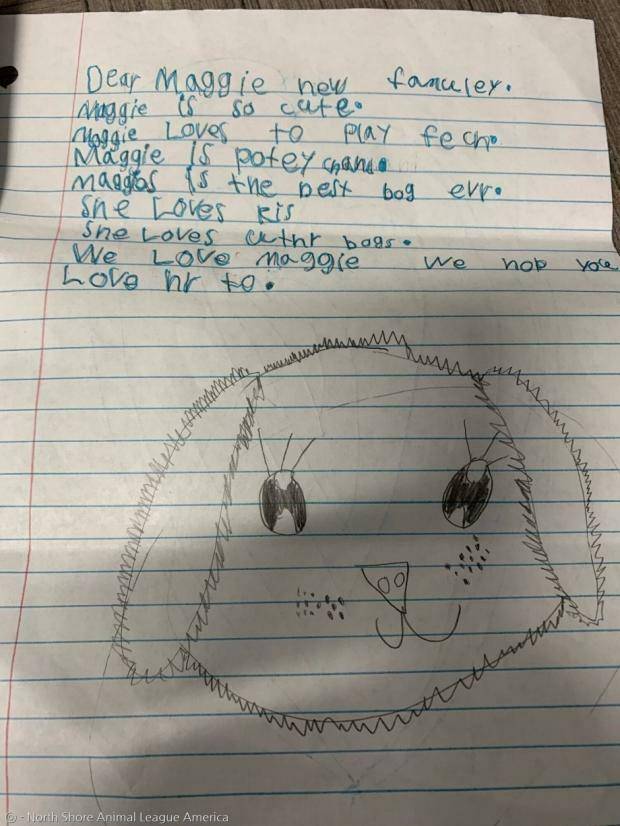 Dear Maggie new famuley.
Maggie is so cute.
Maggie Loves to play fech.
Maggie is potey chand.
maggos is the best bog evr.
She Loves kis
She Loves uthr bogs.
We Love maggie we hop yoce
Love hr to.
© - North Shore Animal League America